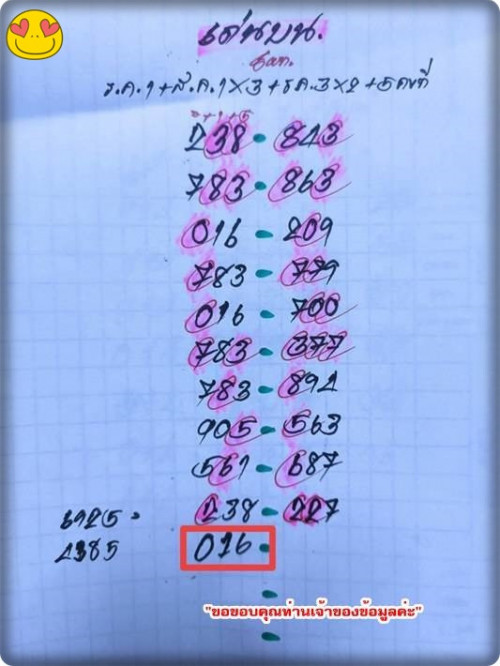 เด่นบน.
สูตร.
ธ.ค.1+ส.ค.1×3+ธค.3×2+5คงที่
238-843
783-863
016-209
783-779
016-700
783-377
783-894
905-563
561-687
238-227
6925=
2385
016-
"ขอขอบคุณท่านเจ้าของข้อมูลค่ะ"